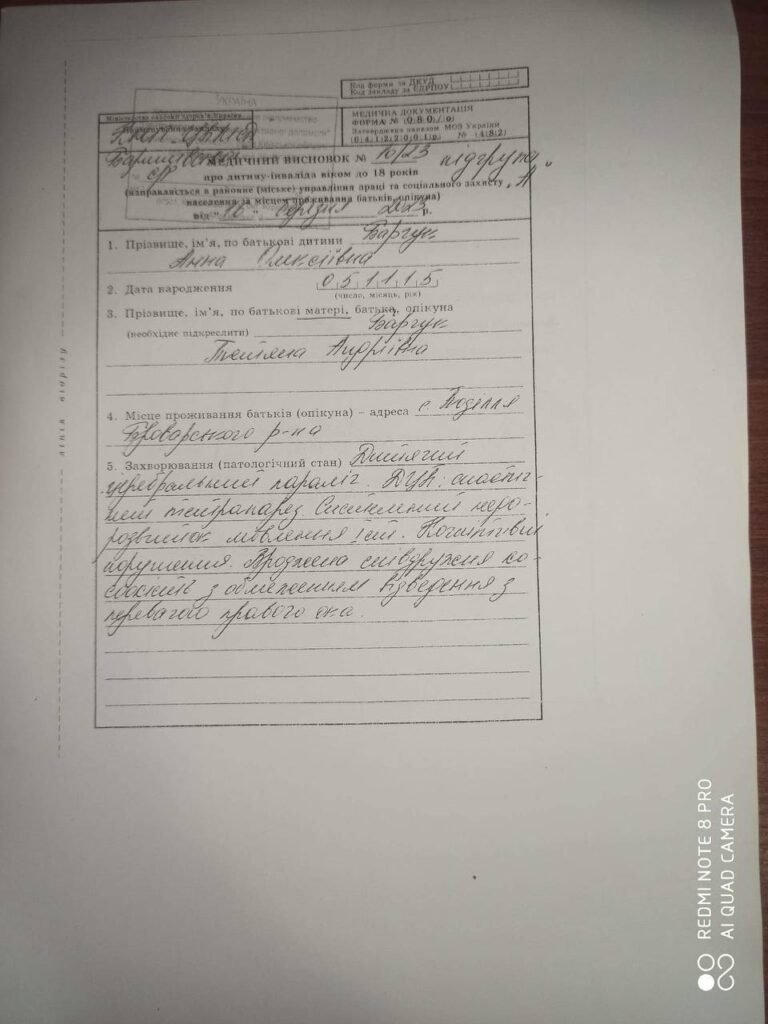 Код форми за ДКУД
Код закладу за ЄДРПОУ
УКРАЇНА
Міністерство охорони здоров'я України
Найменування закладу
МЕДИЧНА ДОКУМЕНТАЦІЯ
ФОРМА № 080/о
Затверджена наказом МОЗ України
04.12.2001р. № 482
МЕДИЧНИЙ ВИСНОВОК № 10/23 підгрупа
про дитину-інваліда віком до 18 років „А"
(направляється в районне (міське) управління праці та соціального захисту
населення за місцем проживання батьків, опікуна)
від "16" серпня 2023 р.
1. Прізвище, ім'я, по батькові дитини Барчук
Анна Олексіївна
2. Дата народження 051115
(число, місяць, рік)
3. Прізвище, ім'я, по батькові матері, батька, опікуна
(необхідне підкреслити) Барчук
Тетяна Андріївна
4. Місце проживання батьків (опікуна) – адреса с. Поділля
Броварського р-на
5. Захворювання (патологічний стан) Дитячий
церебральний параліч. ДЦП: спастич-
ний тетрапарез. Системний недо-
розвиток мовлення Іст. Когнітивні
порушення. Вроджена співдружня ко-
соокість з обмеженням відведення з
перевагою правого ока.
лінія відрізу
REDMI NOTE 8 PRO
AI QUAD CAMERA